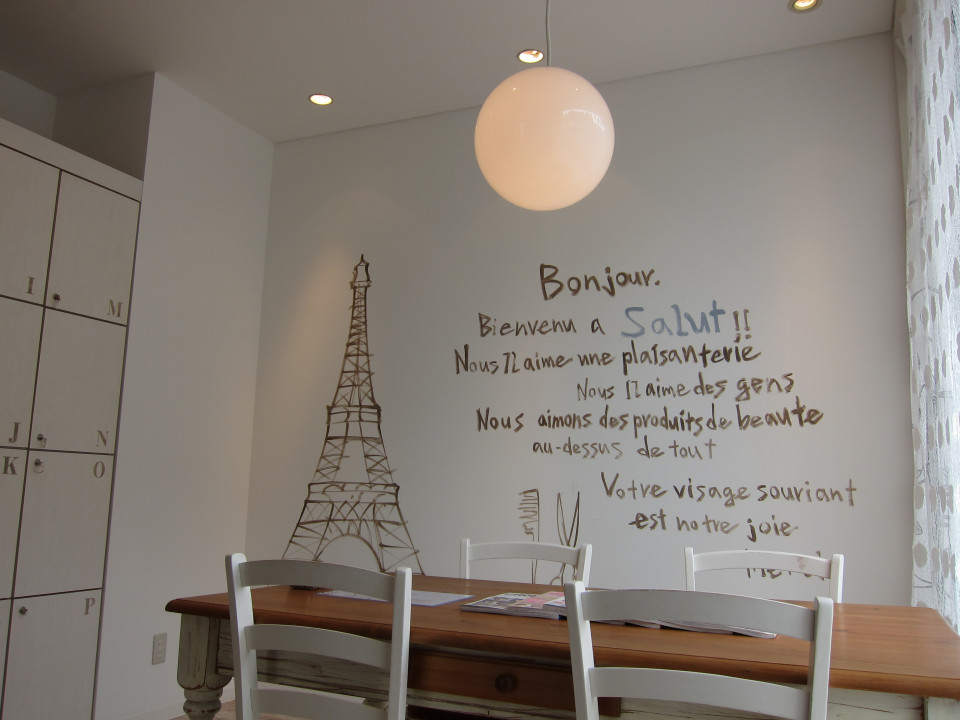 Bonjour.
Bienvenu a Salut!!
Nous Il aime une plaisanterie
Nous Il aime des gens
Nous aimons des produits de beaute
au-dessus de tout
Votre visage souriant
est notre joie
I
M
J
N
K
O
P